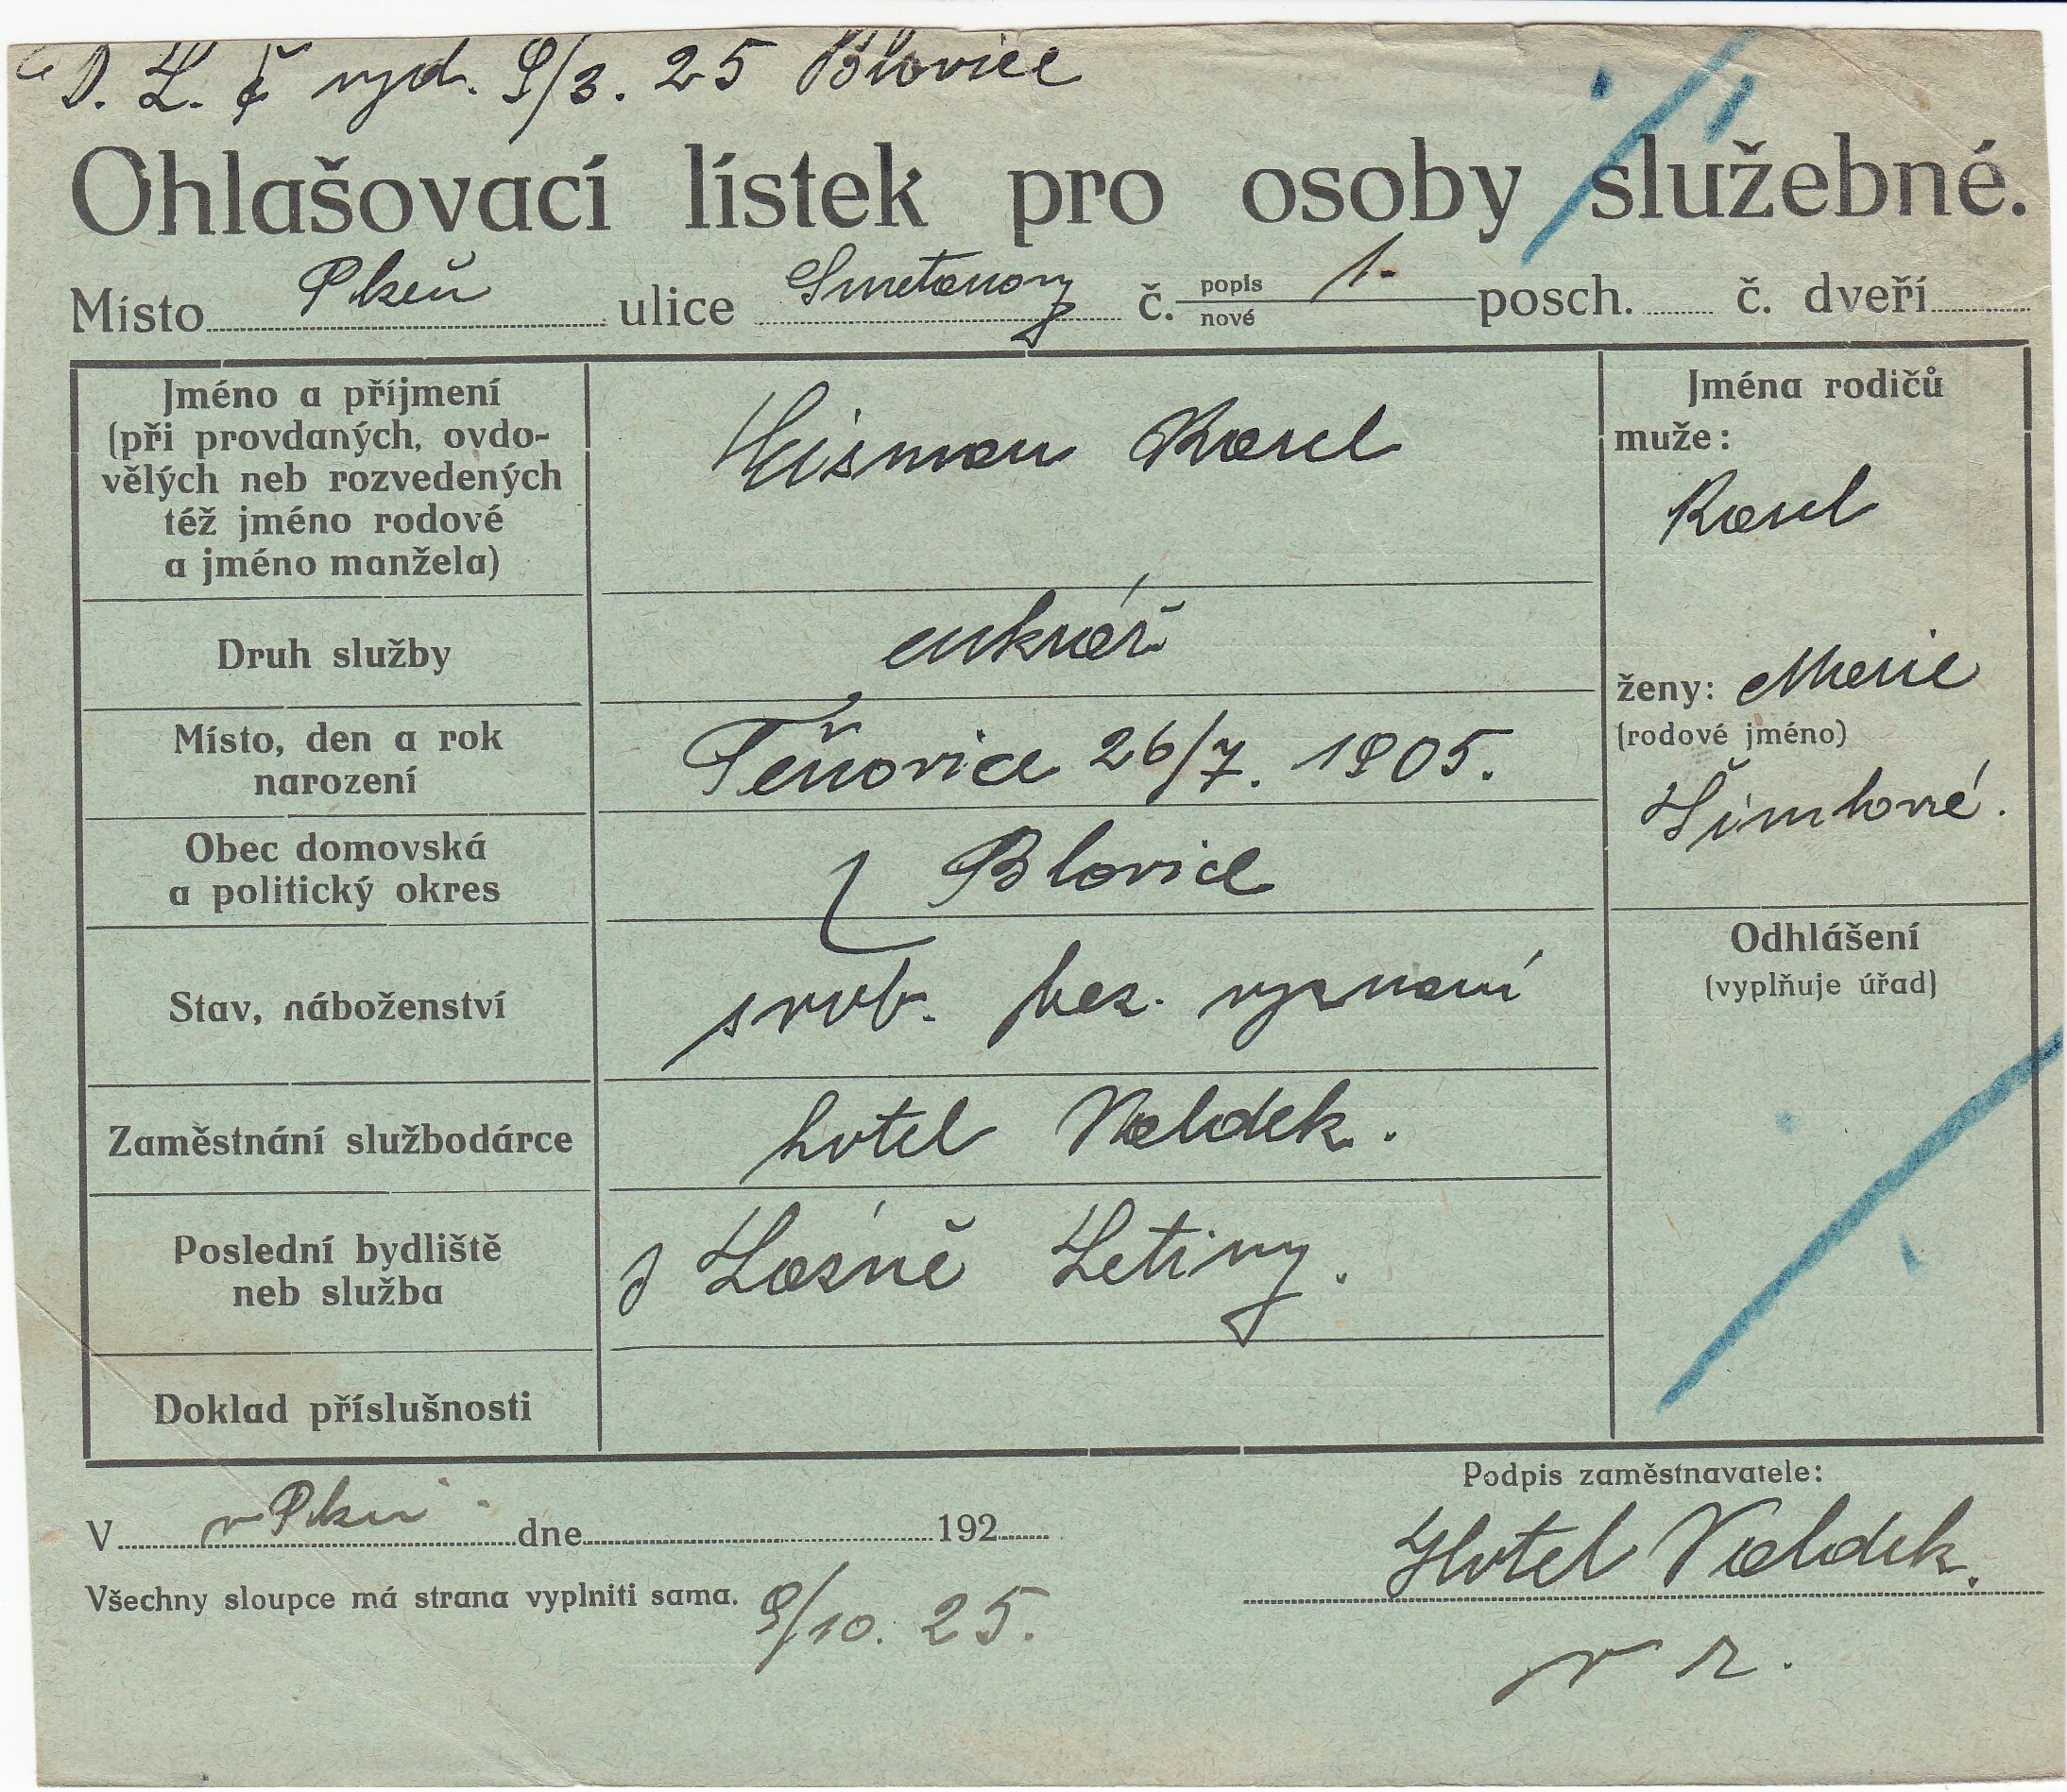 D. L. č vyd. 9/3. 25 Blovice
Ohlašovací lístek pro osoby služebné.
Místo Plzeň ulice Smetanovy č. popis nové 1. posch. č. dveří
Jméno a příjmení
(při provdaných, ovdo-
vělých neb rozvedených
též jméno rodové
a jméno manžela)
Heisman Karel
Jména rodičů
muže:
Karel
ženy: Marie
(rodové jméno)
Šimlové.
Druh služby
cukrář
Místo, den a rok
narození
Těňovice 26/7. 1905.
Obec domovská
a politický okres
Blovice
Odhlášení
(vyplňuje úřad)
Stav, náboženství
svob. bez. vyznaní
Zaměstnání službodárce
hotel Valdek.
Poslední bydliště
neb služba
Lázně Letiny.
Doklad příslušnosti
V v Plzni dne 192
Všechny sloupce má strana vyplniti sama. 9/10. 25.
Podpis zaměstnavatele:
Hotel Valdek.
v z.